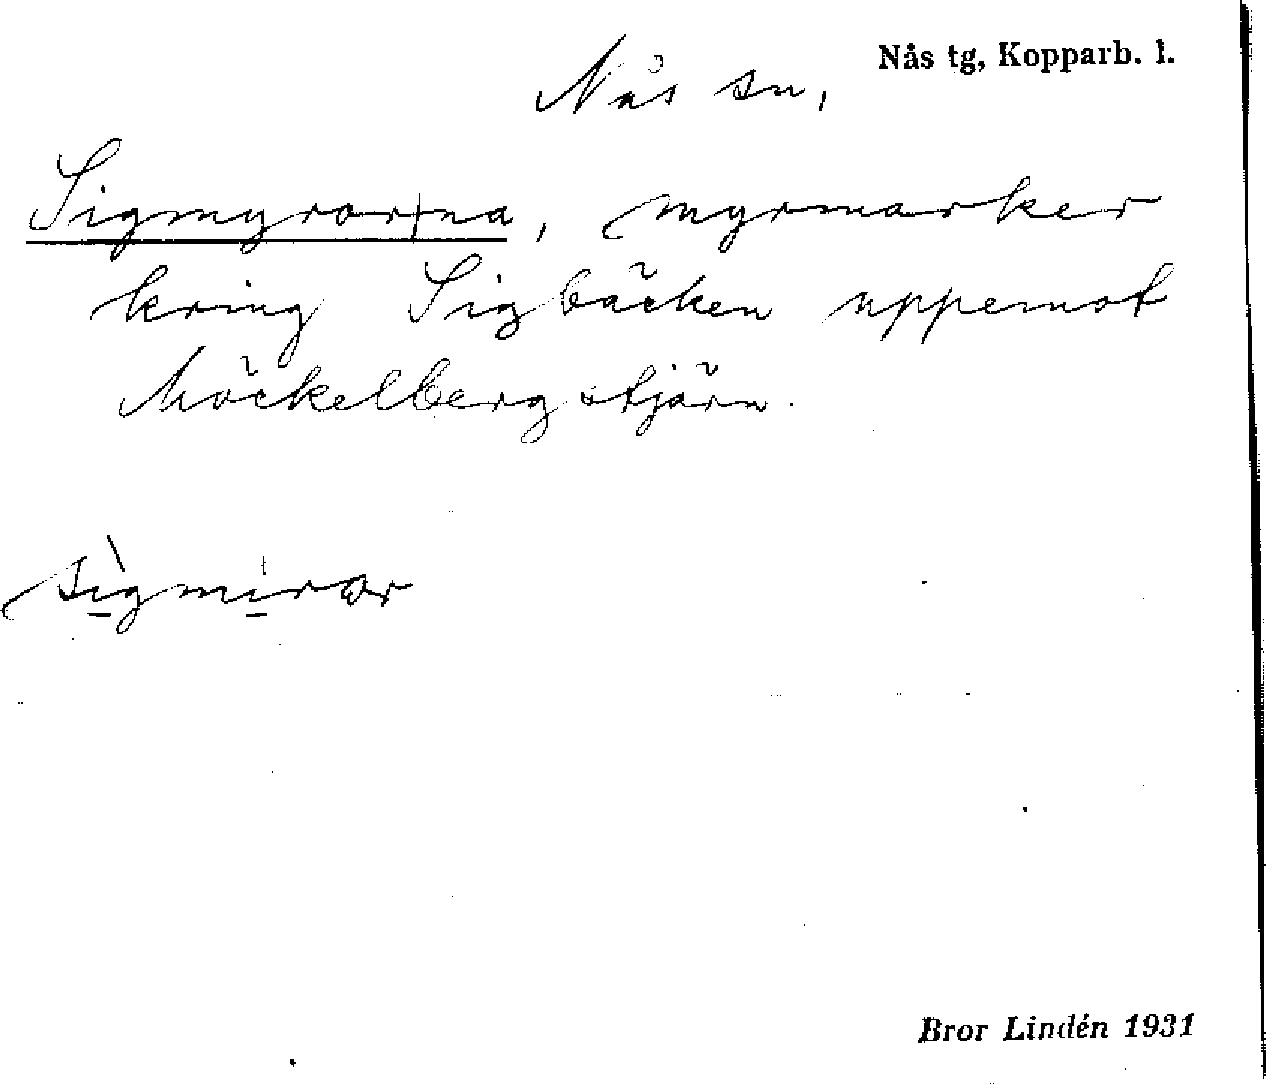 Nås tg, Kopparb. l.
Nås sn,
Sigmyror|na, myrmarker
kring Sigbäcken uppemot
Möckelbergstjärn.
sìgmirar
Bror Lindén 1931